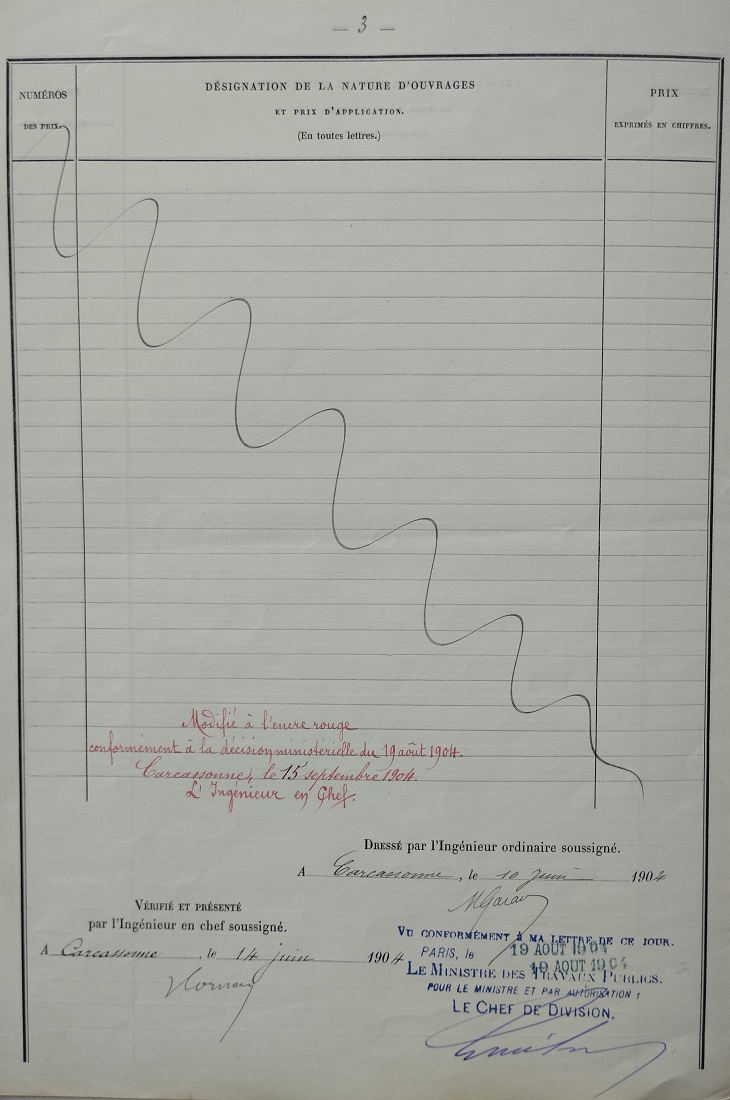 — 3 —
NUMÉROS
DES PRIX.
DÉSIGNATION DE LA NATURE D'OUVRAGES
ET PRIX D'APPLICATION.
(En toutes lettres.)
PRIX
EXPRIMÉS EN CHIFFRES.
Modifié à l'encre rouge
conformément à la décision ministérielle du 19 août 1904.
Carcassonne, le 15 septembre 1904.
L'Ingénieur en Chef.
DRESSÉ par l'Ingénieur ordinaire soussigné.
A Carcassonne, le 10 juin 1904
VÉRIFIÉ ET PRÉSENTÉ
par l'Ingénieur en chef soussigné.
A Carcassonne, le 14 juin 1904
VU CONFORMÉMENT À MA LETTRE DE CE JOUR.
PARIS, le 19 AOUT 1904
19 AOUT 1904
LE MINISTRE DES TRAVAUX PUBLICS.
POUR LE MINISTRE ET PAR AUTORISATION :
LE CHEF DE DIVISION,